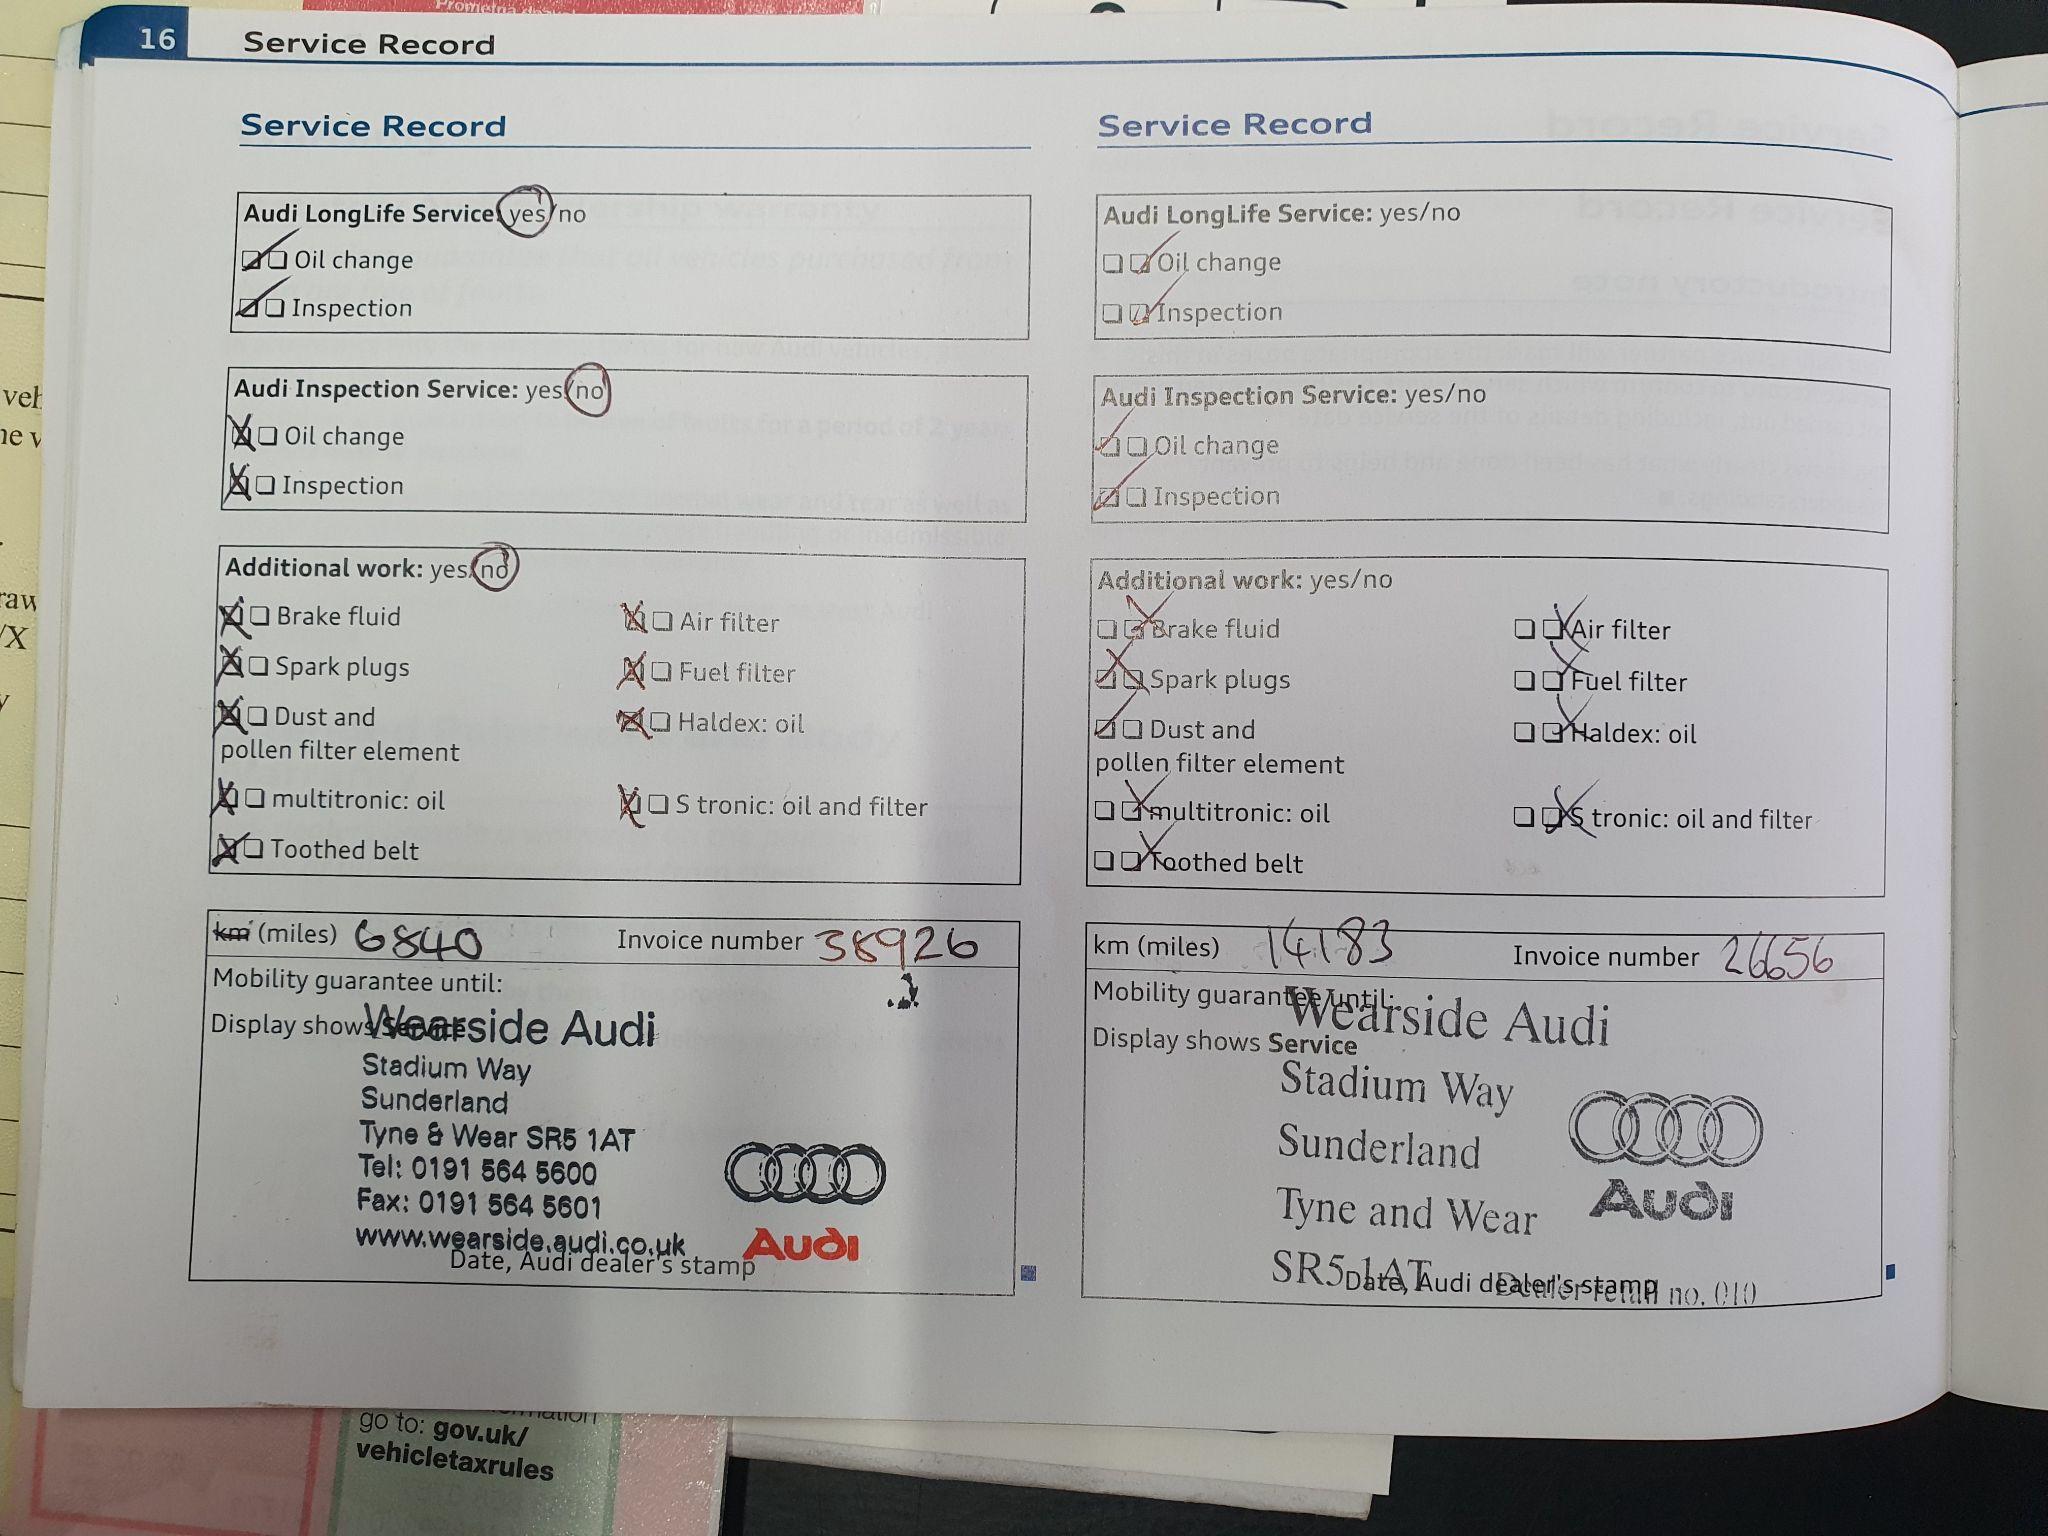 Prometna
16 Service Record
Service Record
Audi LongLife Service: yes/no
Oil change
Inspection
Audi Inspection Service: yes/no
Oil change
Inspection
Additional work: yes/no
Brake fluid
Air filter
Spark plugs
Fuel filter
Dust and
pollen filter element
Haldex: oil
multitronic: oil
S tronic: oil and filter
Toothed belt
km (miles) 6840 Invoice number 38926
Mobility guarantee until:
Display shows Service
Wearside Audi
Stadium Way
Sunderland
Tyne & Wear SR5 1AT
Tel: 0191 564 5600
Fax: 0191 564 5601
www.wearside.audi.co.uk
Audi
Date, Audi dealer's stamp
Service Record
Audi LongLife Service: yes/no
Oil change
Inspection
Audi Inspection Service: yes/no
Oil change
Inspection
Additional work: yes/no
Brake fluid
Air filter
Spark plugs
Fuel filter
Dust and
pollen filter element
Haldex: oil
multitronic: oil
S tronic: oil and filter
Toothed belt
km (miles) 14183 Invoice number 26656
Mobility guarantee until:
Display shows Service
Wearside Audi
Stadium Way
Sunderland
Tyne and Wear
SR5 1AT
Audi
Date, Audi dealer's stamp
Dealer retail no. 010
go to: gov.uk/
vehicletaxrules